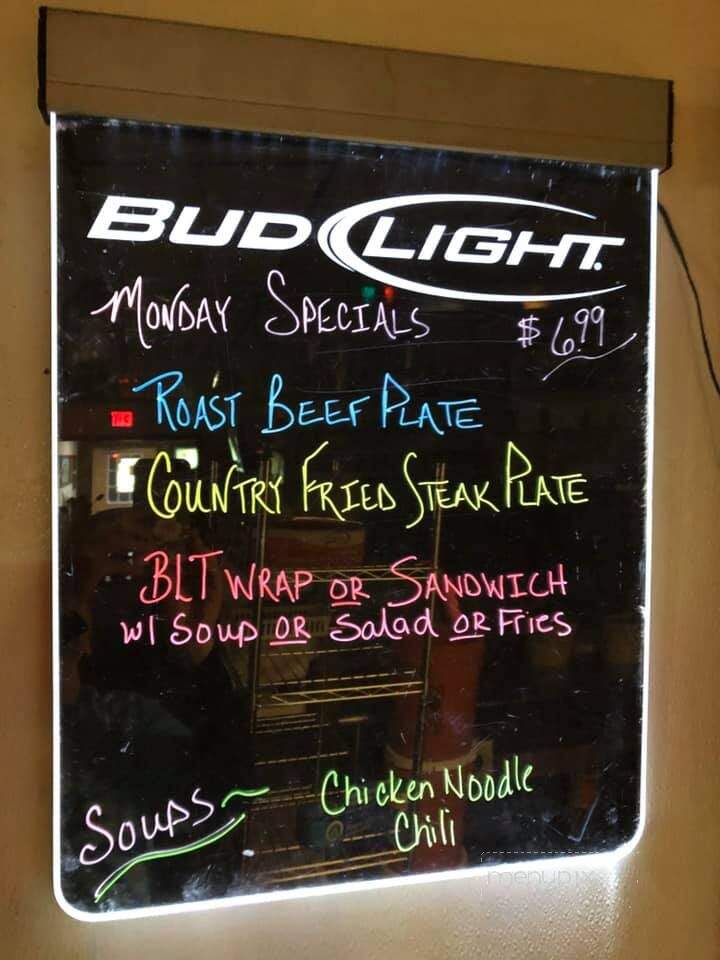 BUD LIGHT
MONDAY SPECIALS $6.99
ROAST BEEF PLATE
COUNTRY FRIED STEAK PLATE
BLT WRAP OR SANDWICH
w/ Soup OR Salad OR Fries
SOUPS~ Chicken Noodle
Chili
menupix